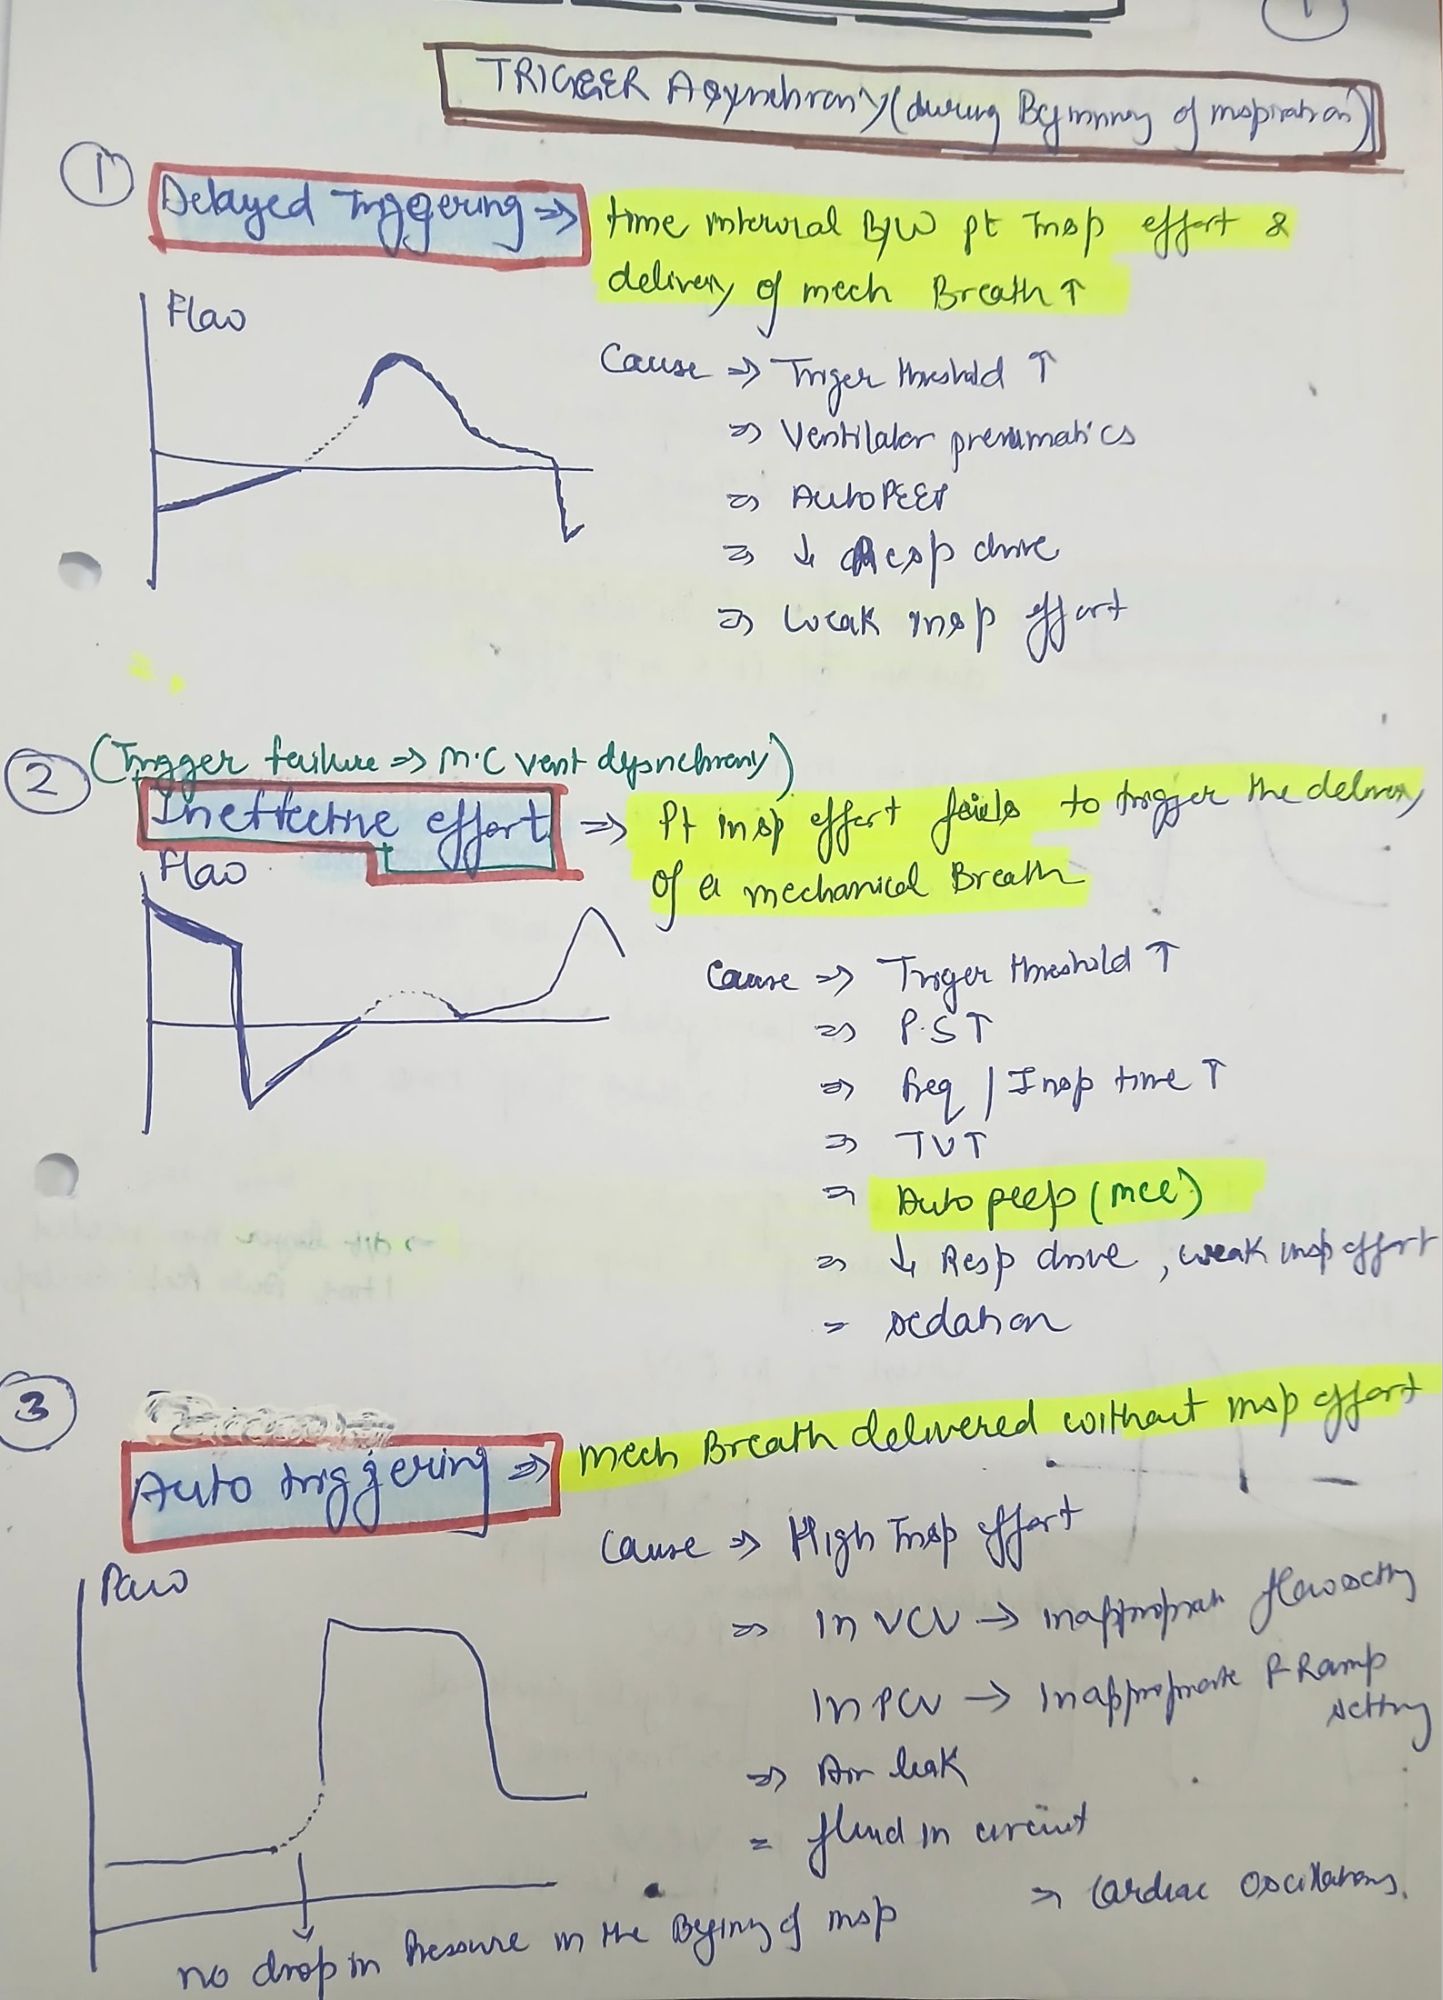 1
TRIGGER Asynchrony (during Beginning of inspiration)
1 Delayed Triggering ⇒ time interval B/W pt Insp effort &
delivery of mech Breath ↑
Flow
Cause ⇒ Triger threshold ↑
⇒ Ventilator pneumatics
⇒ Auto PEEP
⇒ ↓ Resp drive
⇒ Weak insp effort
2 (Trigger failure ⇒ M.C vent dysnchrony)
Ineffective effort ⇒ Pt insp effort fails to trigger the delivery
of a mechanical Breath
Flow
Cause ⇒ Triger threshold ↑
⇒ P.S ↑
⇒ freq / Insp time ↑
⇒ TV ↑
⇒ Auto peep (mcc)
⇒ ↓ Resp drive, weak insp effort
= sedation
3
Auto triggering ⇒ Mech Breath delivered without insp effort
Paw
Cause ⇒ High Insp effort
⇒ In VCV → Inappropriate flow setting
In PCV → Inappropriate P-Ramp
setting
⇒ Air leak
= fluid in circuit
⇒ Cardiac Oscillations.
no drop in Pressure in the Begining of insp